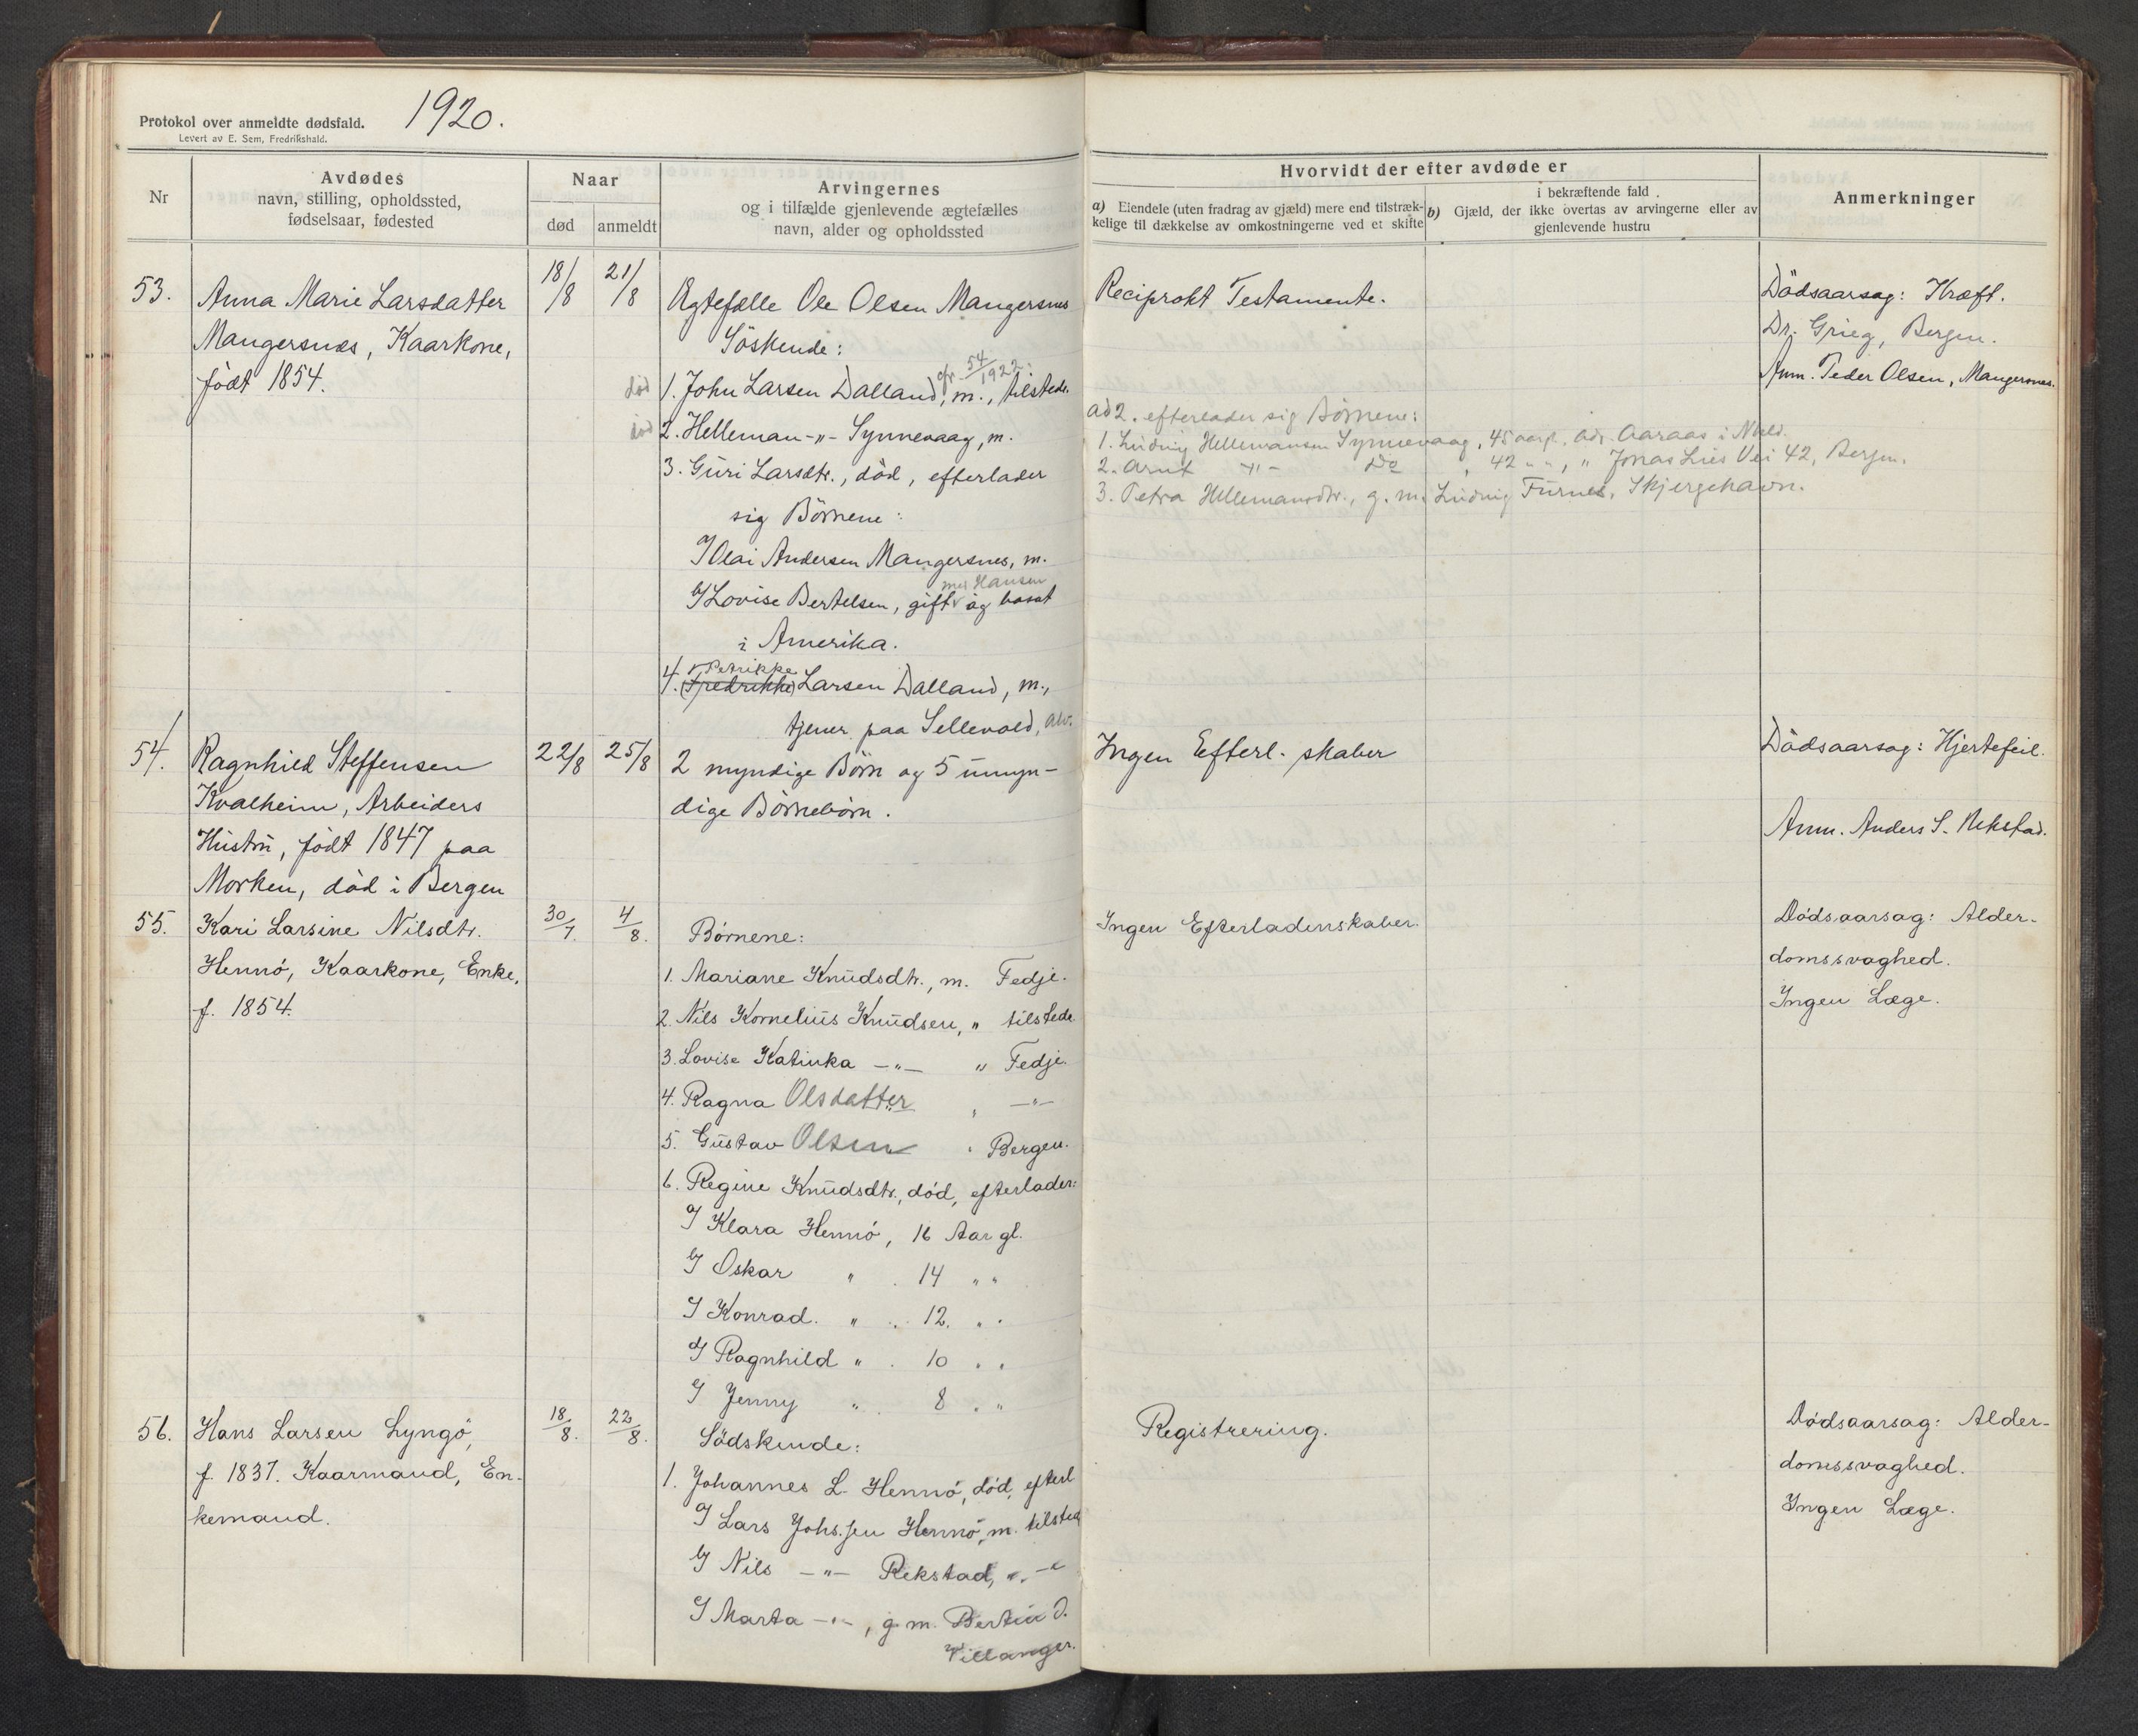 Protokol over anmeldte dødsfald.
1920.
Levert av E. Sem, Fredrikshald.
Nr
Avdødes
navn, stilling, opholdssted,
fødselsaar, fødested
Naar
død
anmeldt
Arvingernes
og i tilfælde gjenlevende ægtefælles
navn, alder og opholdssted
Hvorvidt der efter avdøde er
a) Eiendele (uten fradrag av gjæld) mere end tilstræk-
kelige til dækkelse av omkostningerne ved et skifte
i bekræftende fald
b) Gjæld, der ikke overtas av arvingerne eller av
gjenlevende hustru
Anmerkninger
53.
Anna Marie Larsdatter
Mangersnes, Kaarkone,
født 1854.
18/8
21/8
Ægtefælle Ole Olsen Mangersnes
Söskende:
cfr. 54/1922:
død 1. John Larsen Dalland, m., tilstede.
død 2. Helleman -"- Synnevaag, m.
3. Guri Larsdtr., död, efterlader
sig Börnene:
a/ Olai Andersen Mangersnes, m.
med Hansen
b/ Lovise Bertelsen, gift og bosat
i Amerika.
Petrikke
4. (Fredrikke) Larsen Dalland, m.,
tjener paa Sellevold, Alv.
Reciprokt Testamente.
ad 2. efterlader sig Börnene:
1. Ludvig Hellemansen Synnevaag, 45 aar gl. adr. Aaraas i
2. Arnt -"- Do , 42 " ", " Jonas Lies Vei 42, Bergen.
3. Petra Hellemansdtr., g. m. Ludvig Furnes, Skjergehavn.
Dödsaarsag: Kræft.
Dr. Grieg, Bergen.
Anm. Peder Olsen, Mangersnes.
54.
Ragnhild Steffensen
Kvalheim, Arbeiders
Hustru, födt 1847 paa
Morken, död i Bergen
22/8
25/8
2 myndige Börn og 5 umyn-
dige Börnebörn.
Ingen Efterl.skaber
Dödsaarsag: Hjertefeil.
Anm. Anders S. Rekstad.
55.
Kari Larsine Nilsdtr.
Hennö, Kaarkone, Enke,
f. 1854.
30/7.
4/8.
Börnene:
1. Mariane Knudsdtr., m. Fedje.
2. Nils Kornelius Knudsen, " tilstede
3. Lovise Katinka -"- " Fedje.
4. Ragna Olsdatter , -"-
5. Gustav Olsen " Bergen.
6. Regine Knudsdtr., död, efterlader:
a/ Klara Hennö, 16 Aar gl.
b/ Oskar " . 14 " "
c/ Konrad. " . 12. " "
d/ Ragnhild " . 10 " "
e/ Jenny " . 8 " "
Ingen Efterladenskaber.
Dödsaarsag: Alder-
domssvaghed.
Ingen Læge.
56.
Hans Larsen Lyngö,
f. 1837. Kaarmand, En-
kemand.
18/8.
22/8.
Södskende:
1. Johannes L. Hennö, död, efterl
a/ Lars Johs.sen Hennö, m. tilsted
b/ Nils -"- Rekstad, ". -"
c/ Marta -"-, g. m. Bertin D.
Villanger.
Registrering.
Dödsaarsag: Alder-
domssvaghed.
Ingen Læge.